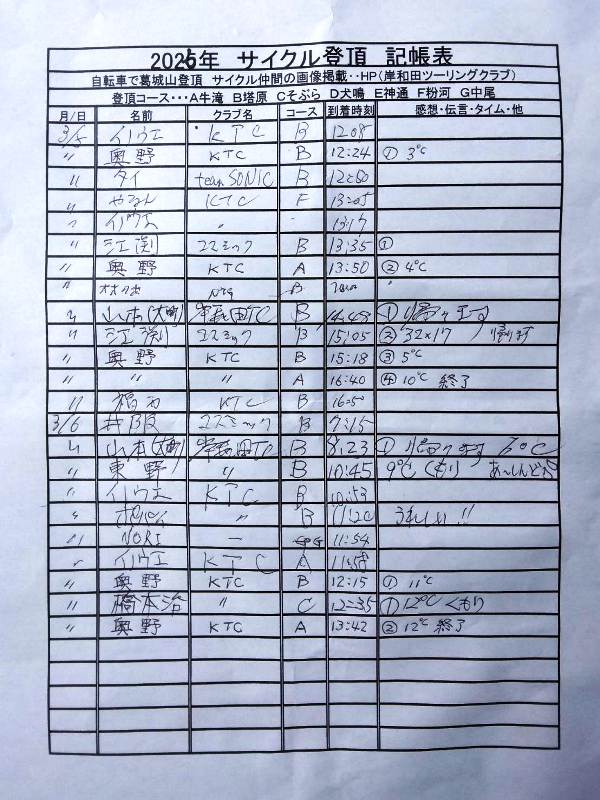 2026年 サイクル登頂 記帳表
自転車で葛城山登頂 サイクル仲間の画像掲載・・HP(岸和田ツーリングクラブ)
登頂コース・・・A牛滝 B塔原 Cそぶら D犬鳴 E神通 F粉河 G中尾
月/日 名前 クラブ名 コース 到着時刻 感想・伝言・タイム・他
3/5 イノウエ KTC B 12:08
〃 奥野 KTC B 12:24 ① 3℃
〃 タイ team SONIC B
〃 KTC F 13:05
〃 イノウエ 〃 13:17
〃 江渕 コスミック B 13:35 ①
〃 奥野 KTC A 13:50 ② 4℃
〃 B
〃 山本(大町) 岸和田TC B 14:43 ① 帰ります
〃 江渕 コスミック B 15:05 ② 32×17 帰ります
〃 奥野 KTC B 15:18 ③ 5℃
〃 〃 〃 A 16:40 ④ 10℃ 終了
〃 KTC B 16:50
3/6 井阪 コスミック B 7:15
〃 山本(大町) 岸和田TC B 8:23 ① 帰ります
〃 東野 〃 B 10:45 9℃ くもり あ〜しんど
〃 イノウエ KTC B 10:53
〃 ポパイ 〃 B 11:20 うれしい!!
〃 NORI ー G 11:54
〃 イノウエ KTC A 11:58
〃 奥野 KTC B 12:15 ① 11℃
〃 橋本治 〃 C 12:35 ① 12℃ くもり
〃 奥野 KTC A 13:42 ② 12℃ 終了